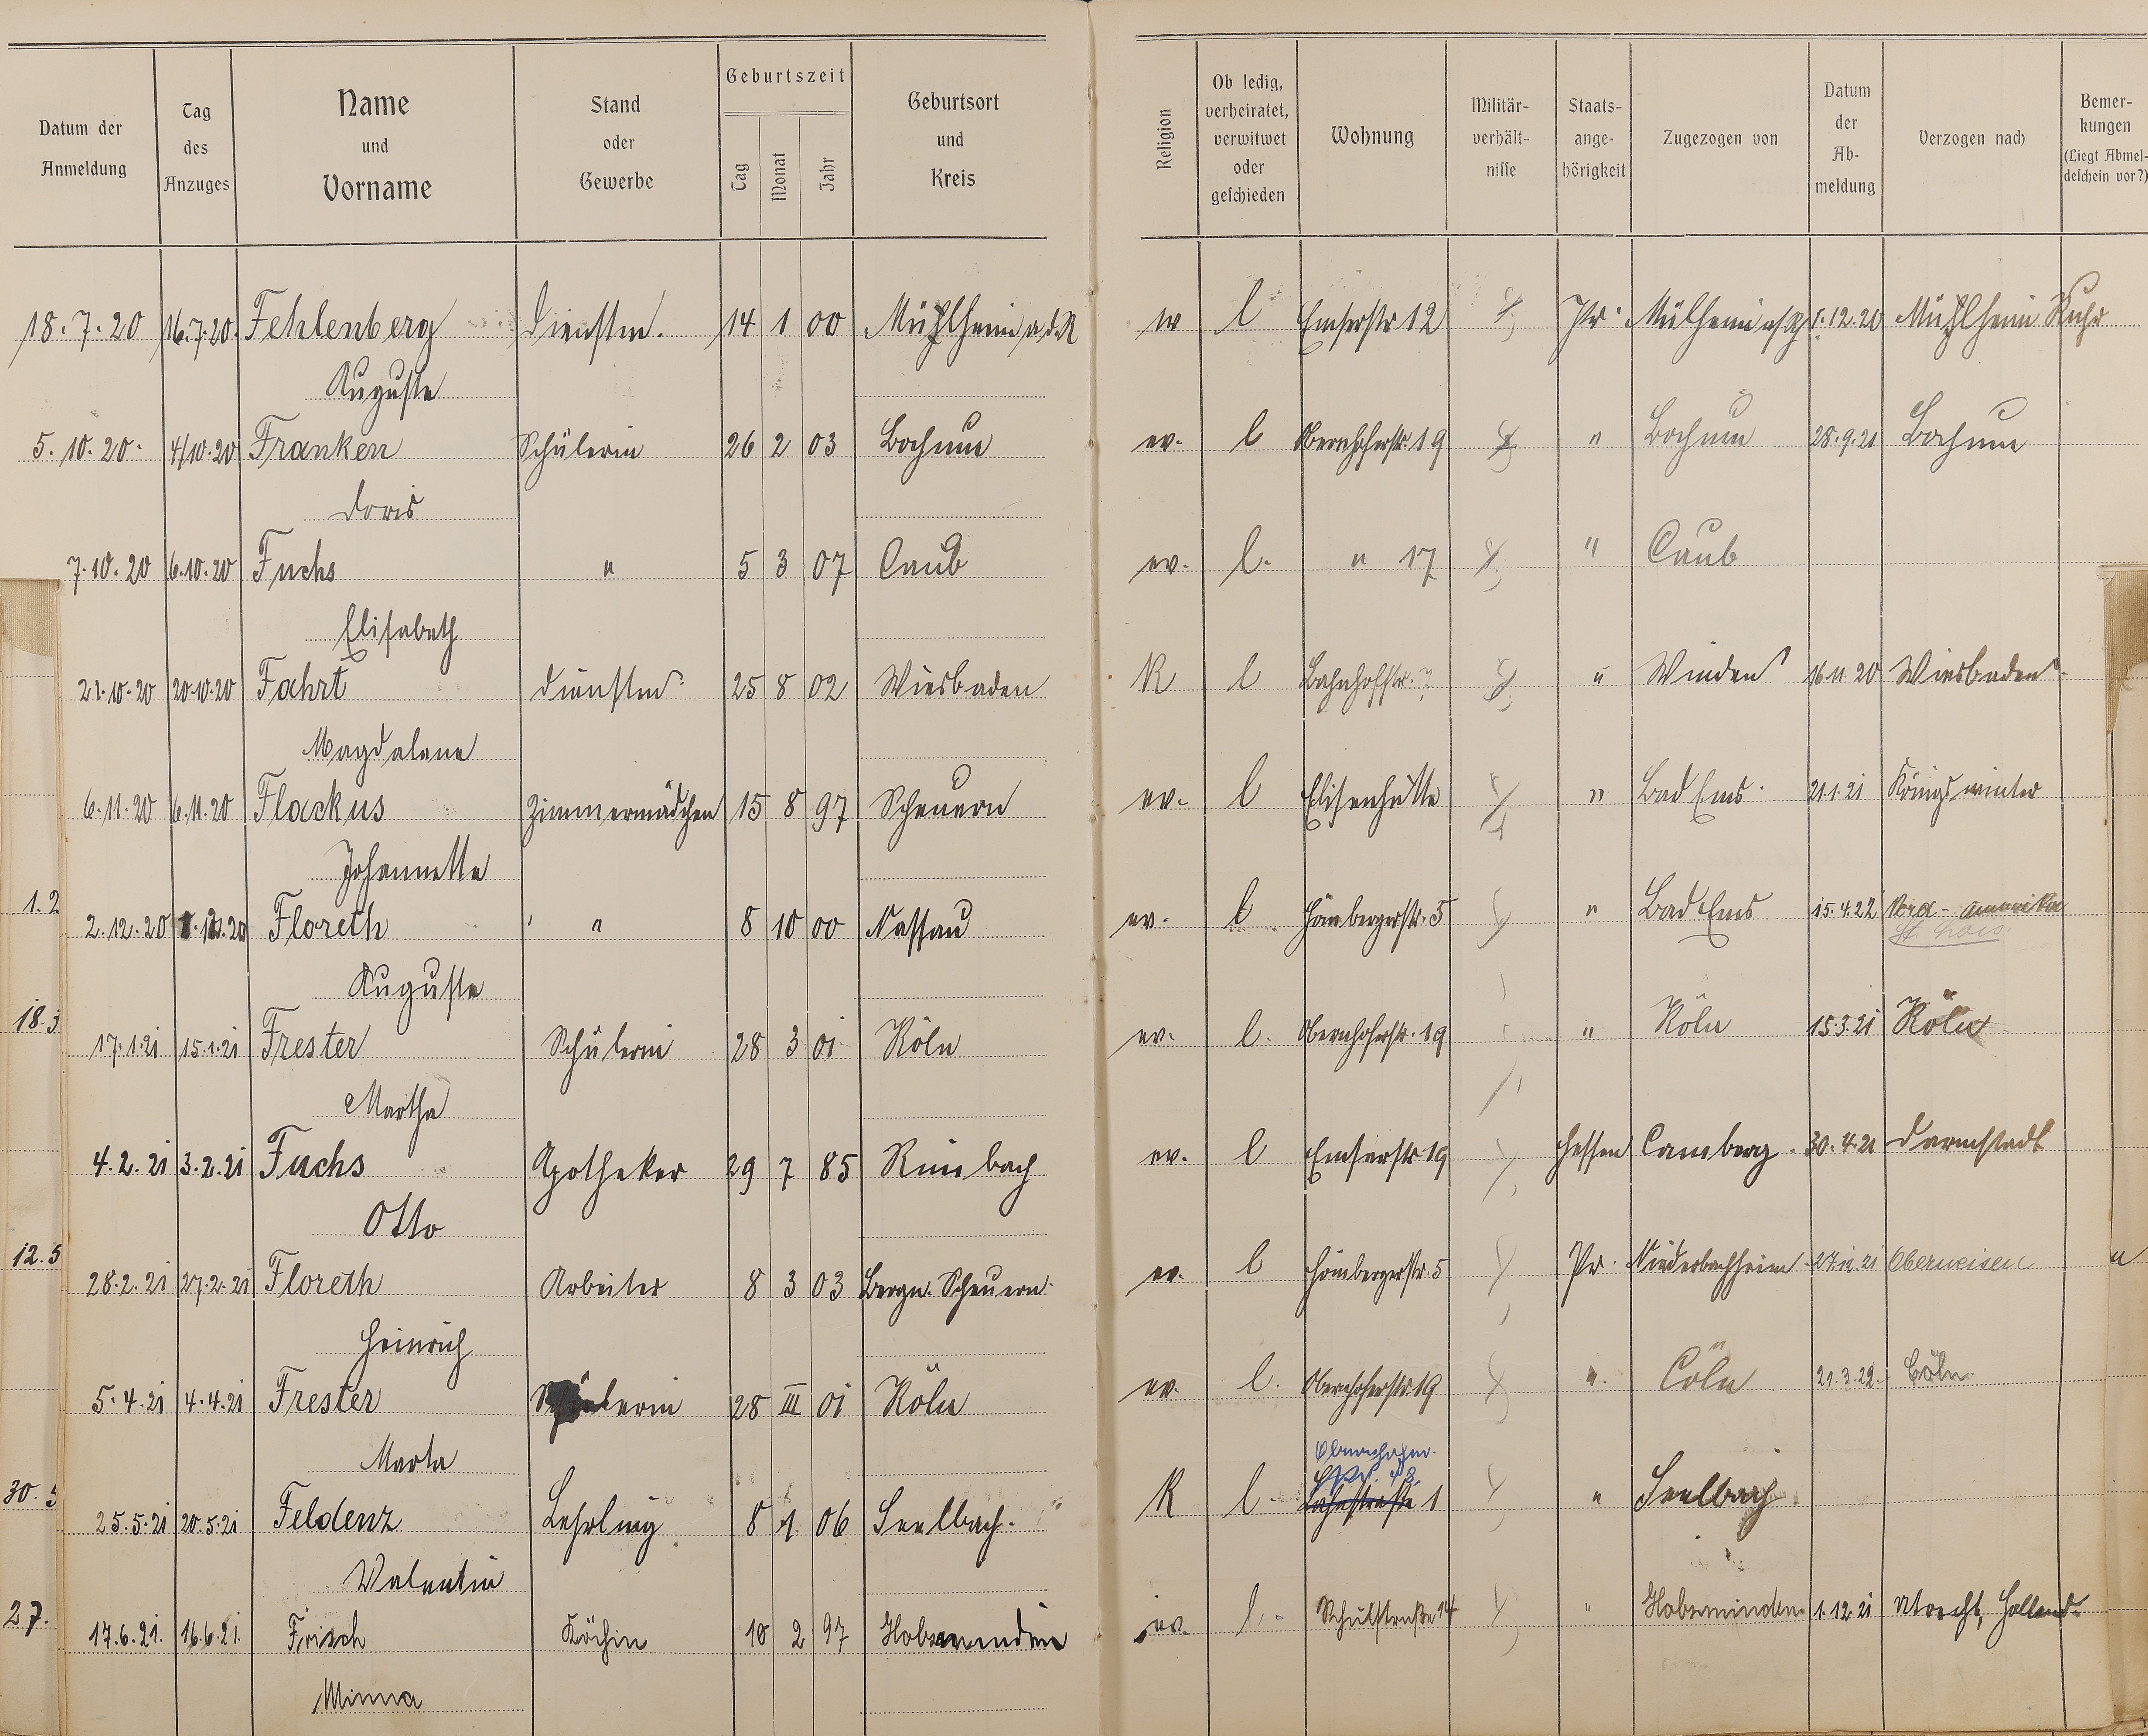 Datum der Anmeldung | Tag des Anzuges | Name und Vorname | Stand oder Gewerbe | Geburtszeit Tag Monat Jahr | Geburtsort und Kreis | Religion | Ob ledig, verheiratet, verwitwet oder geschieden | Wohnung | Militär-verhält-nisse | Staats-ange-hörigkeit | Zugezogen von | Datum der Ab-meldung | Verzogen nach | Bemer-kungen (Liegt Abmel-deschein vor?)
18.7.20 16.7.20 Fehlenberg Dienstm. 14 1 00 Mühlheim a.d.R ev l Emserstr 12 Pr. Mülheim 1.12.20 Mühlheim Ruhr
Auguste
5.10.20. 4/10.20 Franken Schülerin 26 2 03 Bochum ev. l Obernhoferstr. 19 " Bochum 28.9.21 Bochum
Doris
7.10.20 6.10.20 Fuchs " 5 3 07 Caub ev. l. " 17 " Caub
Elisabeth
21.10.20 20.10.20 Fahrt Dienstm 25 8 02 Wiesbaden K l Bahnhofstr. 7 " Winden 16.11.20 Wiesbaden.
Magdalene
6.11.20 6.11.20 Flackus Zimmermädchen 15 8 97 Scheuern ev. l Elisenhütte " Bad Ems. 21.1.21 Königswinter
Johannette
1.2
2.12.20 1.12.20 Floreth " 8 10 00 Nassau ev. l Hömbergerstr. 5 " Bad Ems 15.4.22 Nord-Amerika
Auguste
18.3
17.1.21 15.1.21 Frester Schülerin 28 3 01 Köln ev. l. Obernhoferstr. 19 " Köln 15.3.21 Köln
Martha
4.2.21 3.2.21 Fuchs Apotheker 29 7 85 Rimbach ev. l Emserstr 19 Hessen Camberg. 30.4.21 Darmstadt
Otto
12.5
28.2.21 27.2.21 Floreth Arbeiter 8 3 03 Bergn. Scheuern. ev. l Hömbergerstr. 5 Pr. Niederbachheim 27.12.21 Oberneisen
Heinrich
5.4.21 4.4.21 Frester Schülerin 28 III 01 Köln ev. l. Obernhoferstr. 19 ". Cöln 21.3.22. Cöln
Marta
Obernhofer-
30.5
25.5.21 20.5.21 Feldenz Lehrling 8 1 06 Seelbach. K l. 1 " Seelbach
Valentin
27.
17.6.21. 16.6.21. Frisch Köchin 10 2 97 ev. l. Schulstraße 14 " 1.12.21 Utrecht, Holland.
Minna